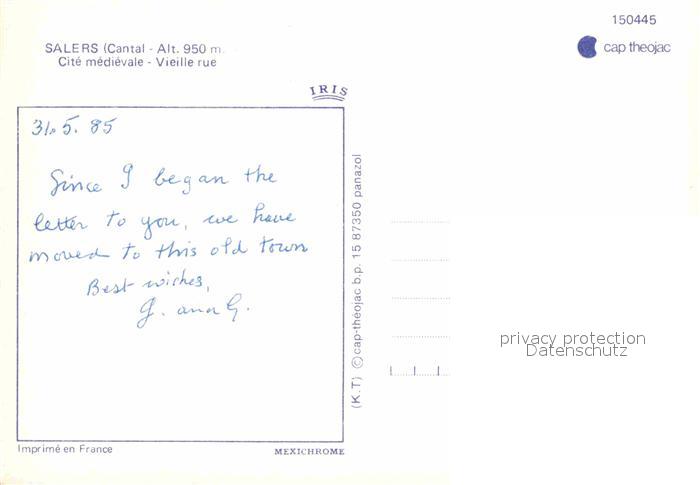 150445
cap theojac
SALERS (Cantal - Alt. 950 m.
Cité médiévale - Vieille rue
IRIS
31.5.85
Since I began the
letter to you, we have
moved to this old town
Best wishes,
J. and G.
(K.T) ©cap-théojac b.p. 15 87350 panazol
privacy protection
Datenschutz
Imprimé en France
MEXICHROME